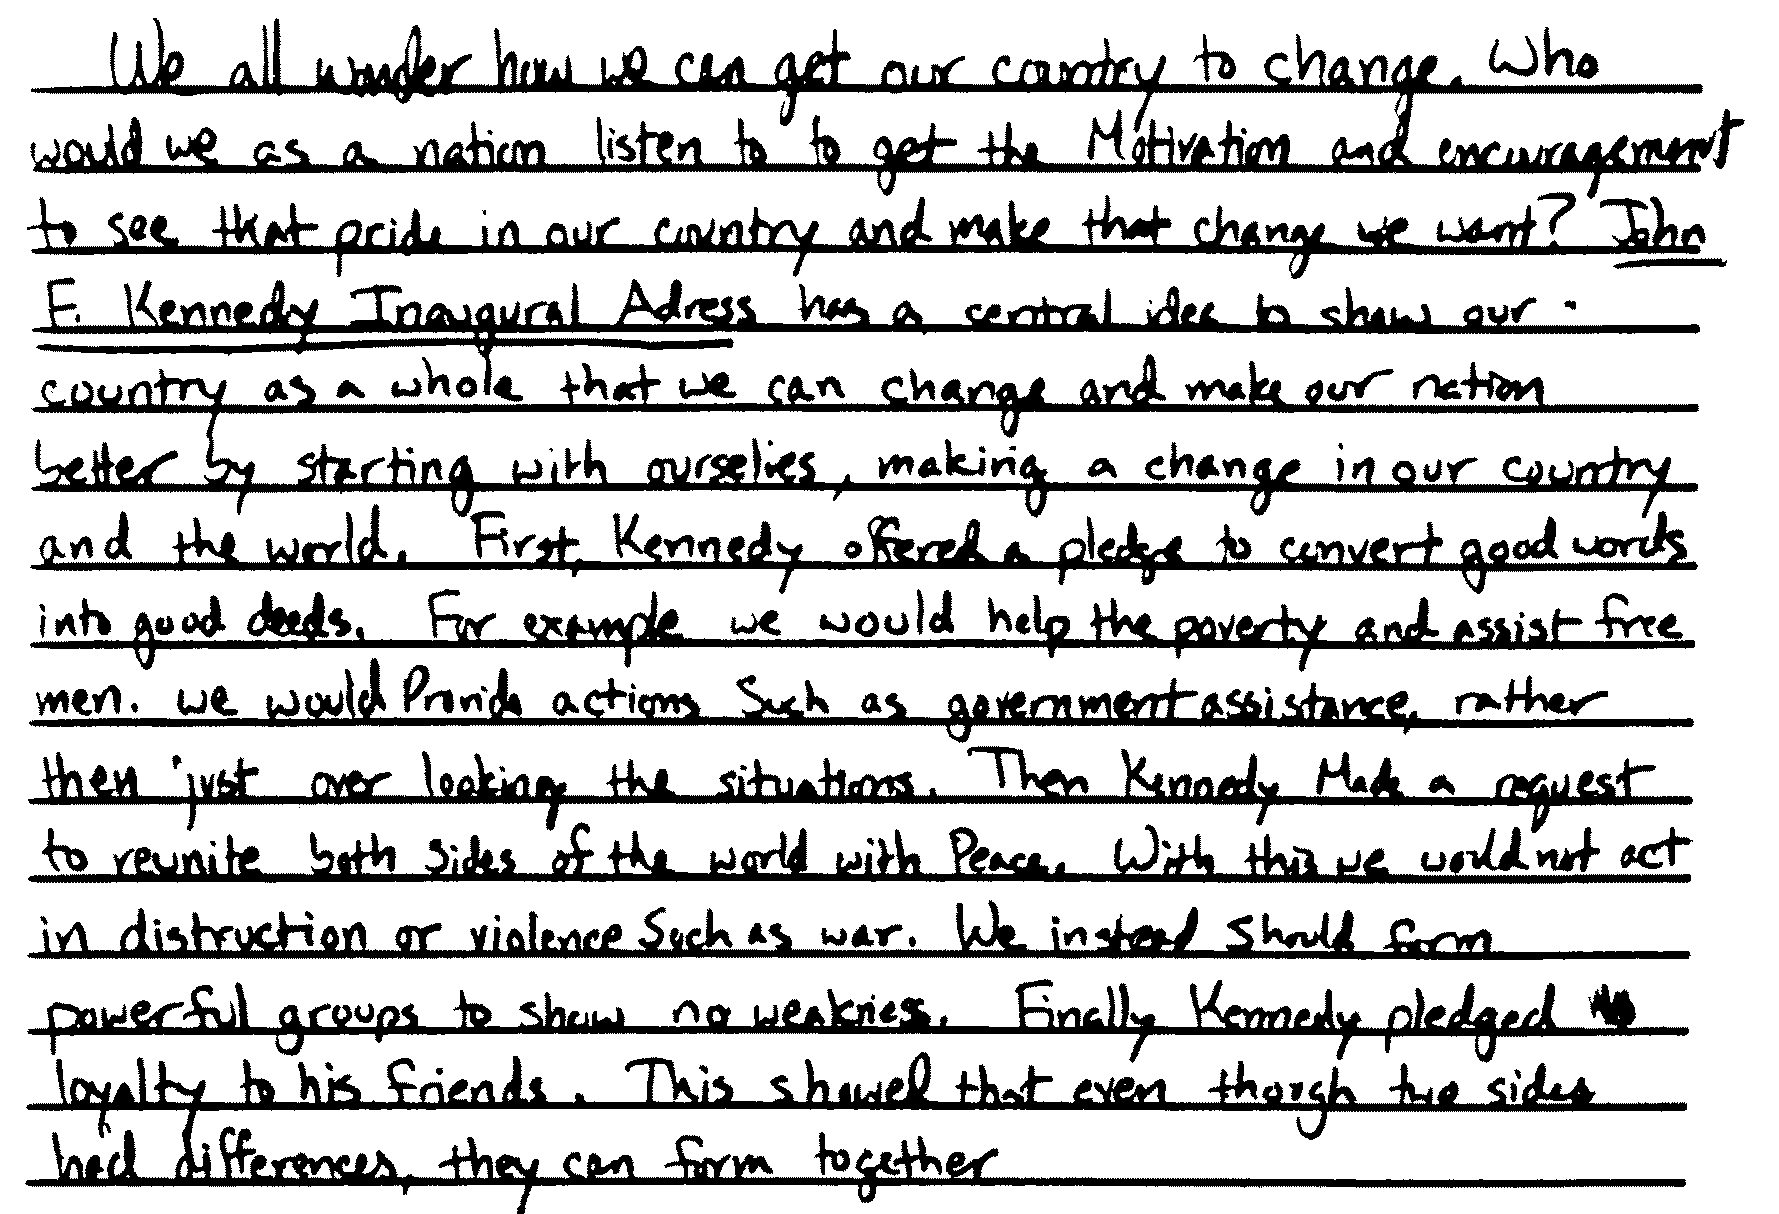 We all wonder how we can get our country to change. Who
would we as a nation listen to to get the Motivation and encouragement
to see that pride in our country and make that change we want? John
F. Kennedy Inaugural Adress has a central idea to show our
country as a whole that we can change and make our nation
better by starting with ourselves, making a change in our country
and the world. First, Kennedy offered a pledge to convert good words
into good deeds. For example we would help the poverty and assist free
men. we would Provide actions Such as government assistance, rather
then just over looking the situations. Then Kennedy Made a request
to reunite both Sides of the world with Peace. With this we would not act
in distruction or violence Such as war. We instead should form
powerful groups to show no weakness. Finally Kennedy pledged
loyalty to his friends. This showed that even though two sides
had differences, they can form together